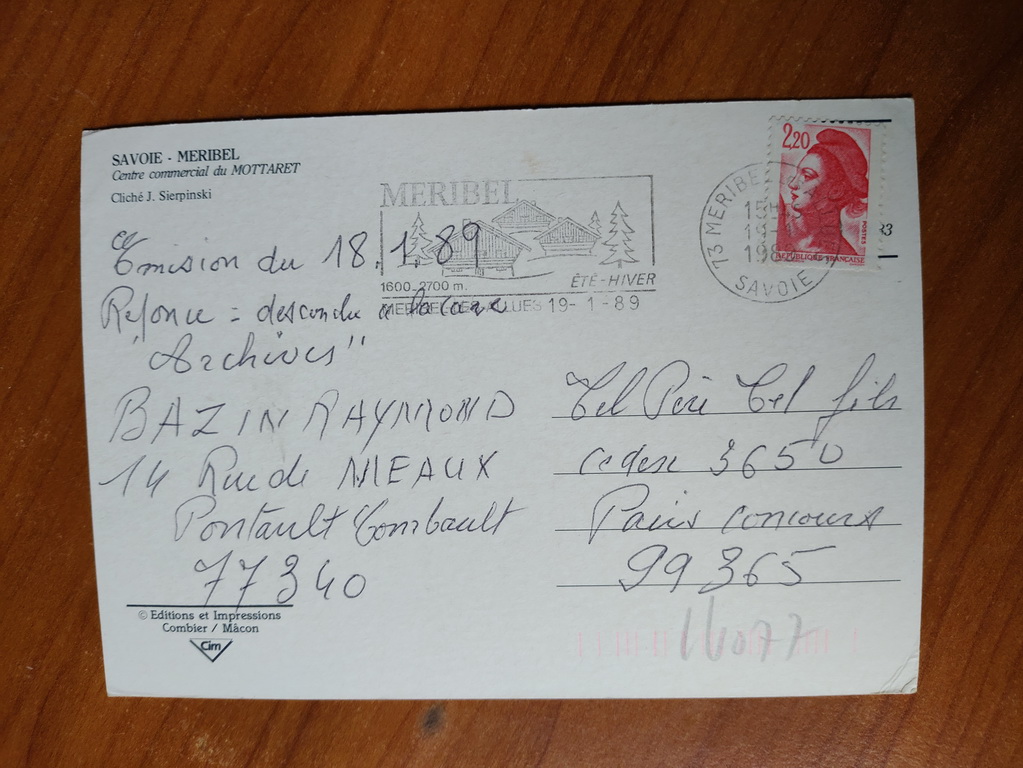 SAVOIE - MERIBEL
Centre commercial du MOTTARET
Cliché J. Sierpinski
MERIBEL
1600-2700 m.
ÉTÉ-HIVER
MERIBEL-LES-ALLUES 19-1-89
73 MERIBEL
15H
19-1
SAVOIE
2,20
POSTES
REPUBLIQUE FRANCAISE
Emision du 18.1.89
Reponce = descendre a la cave
"Archives"
BAZIN RAYMOND
14 Rue de MEAUX
Pontault Combault
77340
Tel Père Tel fils
cedex 3650
Paris concours
99365
© Editions et Impressions
Combier / Mâcon
Cim
16077